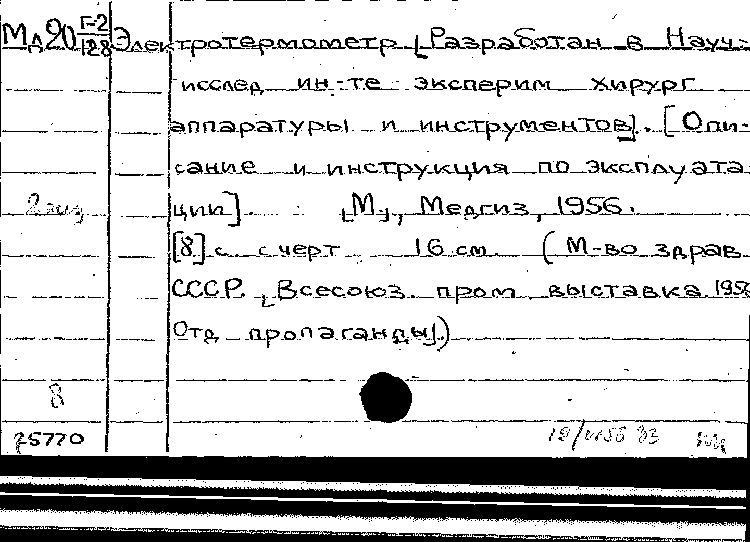 Мд20 Г-2/128 Электротермометр [Разработан в Науч.-
исслед ин-те эксперим хирург
аппаратуры и инструментов]. [Опи-
сание и инструкция по эксплуата
2 экз ции]. [М.], Медгиз, 1956.
[8] с. с черт 16 см (М-во здрав
СССР. [Всесоюз. пром выставка 1956
Отд пропаганды].)
8
75770